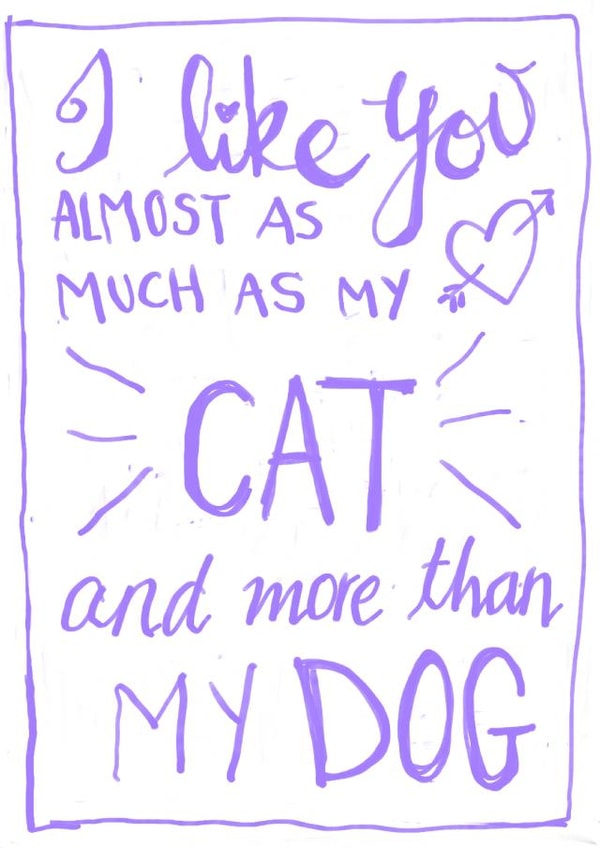 I like you
ALMOST AS
MUCH AS MY
CAT
and more than
MY DOG